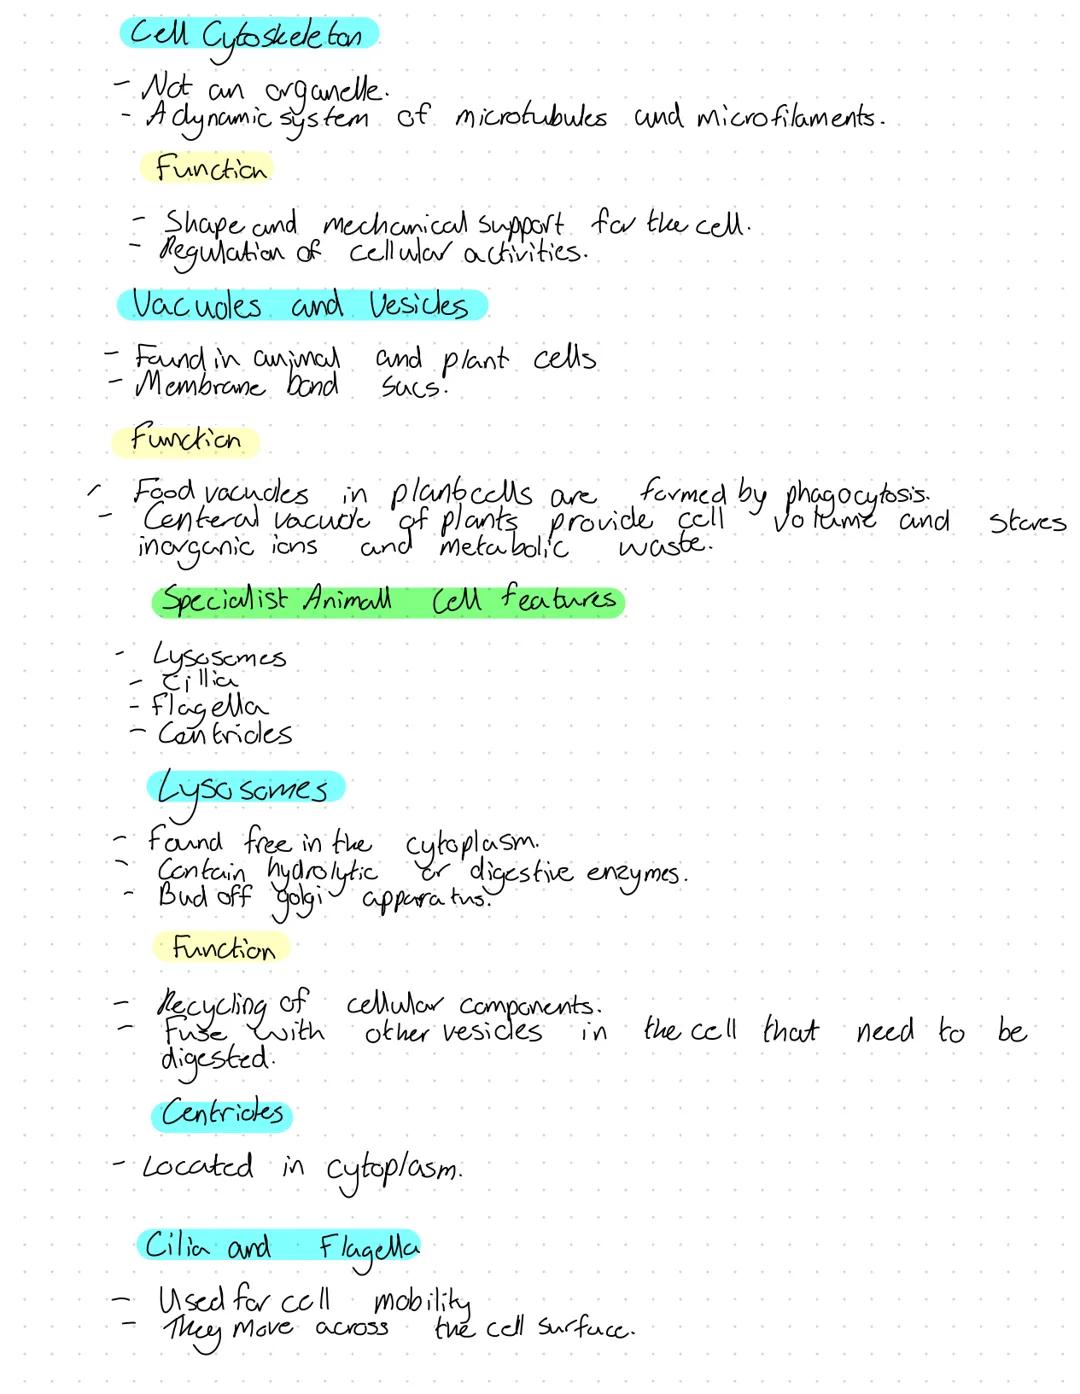 Cell Cytoskeleton
- Not an organelle.
- A dynamic system of microtubules and microfilaments.
Function
- Shape and mechanical support for the cell.
- Regulation of cellular activities.
Vacuoles and Vesicles
- Found in animal and plant cells
- Membrane bond sacs.
Function
- Food vacuoles in plant cells are formed by phagocytosis.
- Centeral vacuole of plants provide cell volume and stores
inorganic ions and metabolic waste.
Specialist Animall Cell features
- Lysosomes
- Cillia
- Flagella
- Centrioles
Lysosomes
- Found free in the cytoplasm.
- Contain hydrolytic or digestive enzymes.
- Bud off golgi apparatus.
Function
- Recycling of cellular components.
- Fuse with other vesicles in the cell that need to be
digested.
Centrioles
- Located in cytoplasm.
Cilia and Flagella
- Used for cell mobility
- They move across the cell surface.